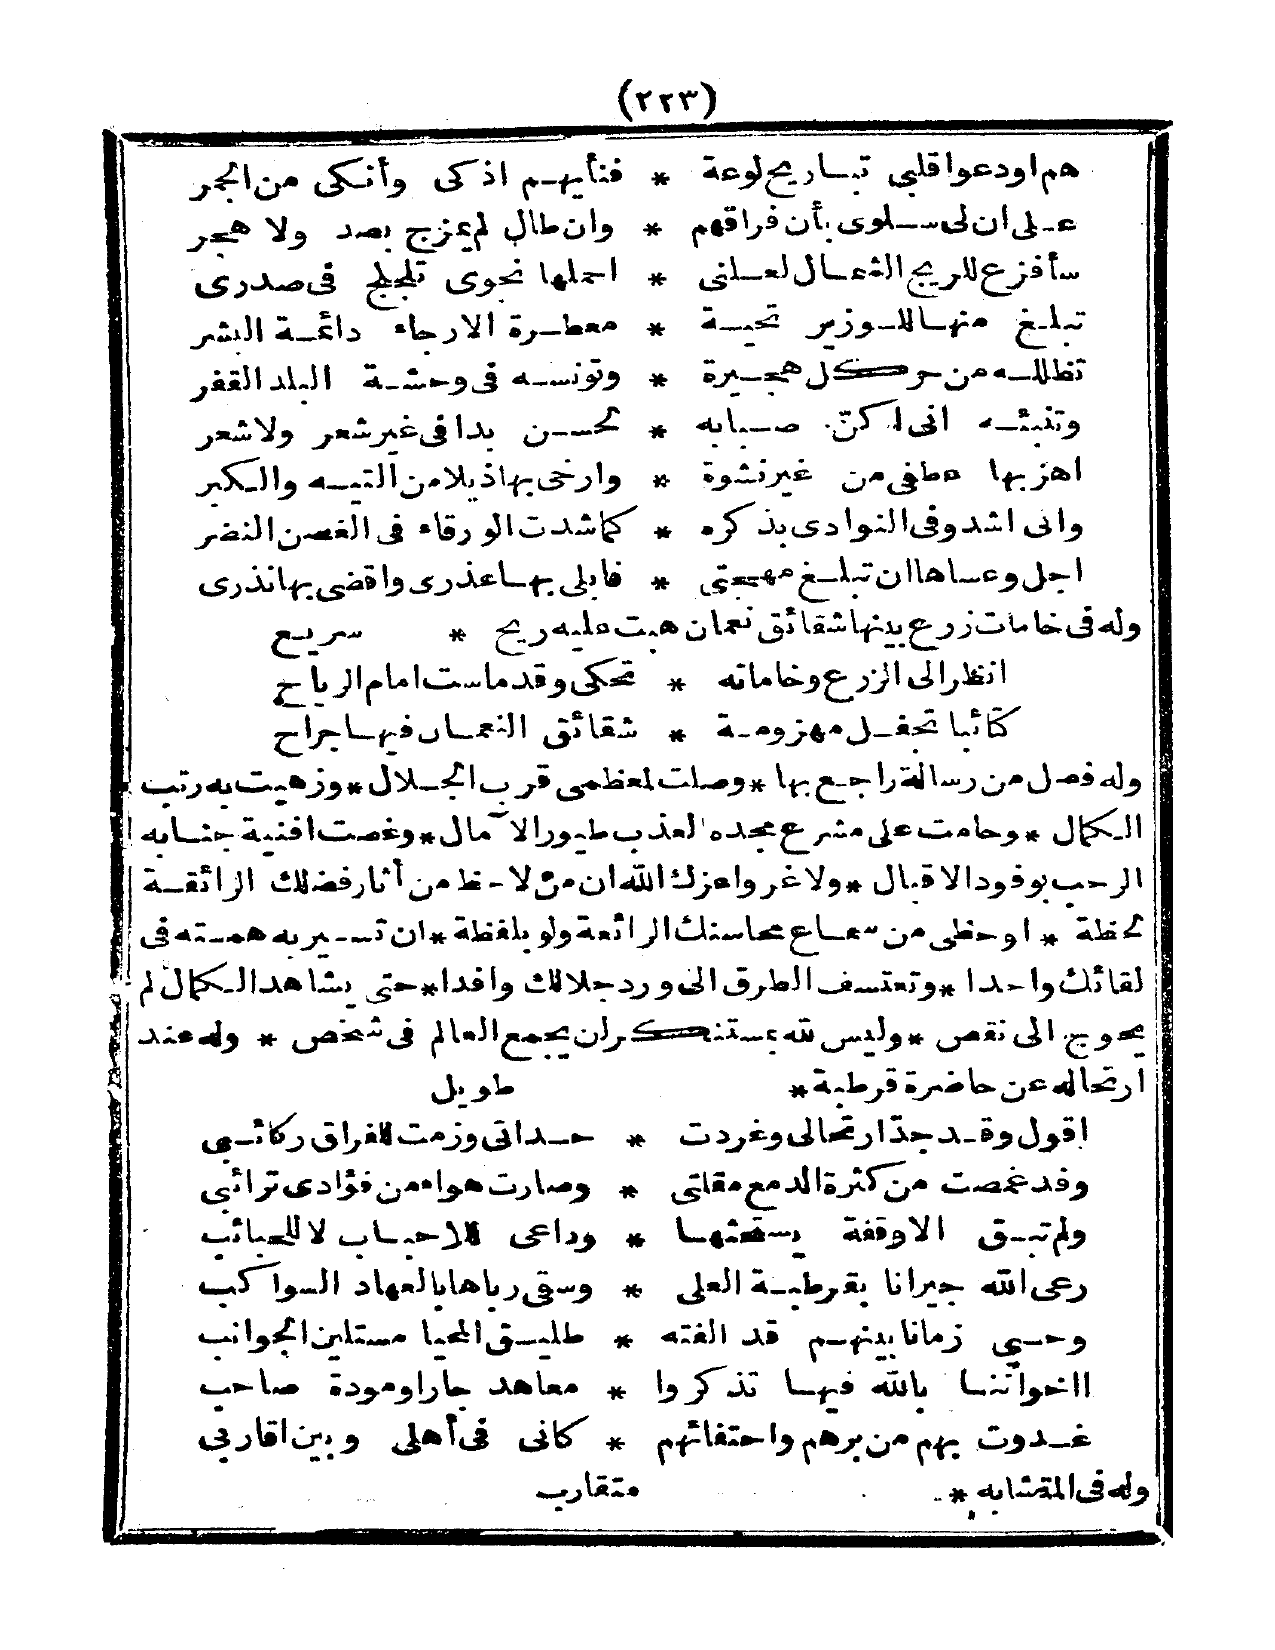 (٢٢٣)
هم اودعوا قلبى تباريح لوعة * فنأيهم اذكى وأنكى من الجمر
على ان لى سلوى بأن فراقهم * وان طال لم يمزج بصد ولا هجر
سأفزع للريح الشمال لعلنى * احملها نجوى تلجلج فى صدرى
تبلغ منها للوزير تحية * معطرة الارجاء دائمة البشر
تظلله من حر كل هجيرة * وتونسه فى وحشة البلد القفر
وتنبئه انى اكنّ صبابه * لحسن بدا فى غير شعر ولا شعر
اهز بها عطفى من غير نشوة * وارخى بها ذيلا من التيه والكبر
وانى اشدو فى النوادى بذكره * كما شدت الورقاء فى الغصن النضر
اجل وعساها ان تبلغ مهجتى * فابلى بها عذرى واقضى بها نذرى
وله فى خامات زرع بينها شقائق نعمان هبت عليه ريح * سريع
انظر الى الزرع وخاماته * تحكى وقد ماست امام الرياح
كتائبا تجفل مهزومة * شقائق النعمان فيها جراح
وله فصل من رسالة راجع بها * وصلت لمعظمى قرب الجلال * وزهيت به رتب
الكمال * وحامت على مشرع مجده العذب طيور الآمال * وغصت افنية جنابه
الرحب بوفود الاقبال * ولا غرو اعزك الله ان من لاحظ من أثار فضلك الرائقة
لحظة * او حظى من سماع محاسنك الرائعة ولو بلفظة * ان تسير به همته فى
لقائك واحدا * وتعتسف الطرق الى ورد جلالك وافدا * حتى يشاهد الكمال لم
يحوج الى نقص * وليس لله بمستنكر ان يجمع العالم فى شخص * وله عند
ارتحاله عن حاضرة قرطبة * طويل
اقول وقد جدّ ارتحالى وغردت * حداتى وزمت للفراق ركائبى
وقد غمصت من كثرة الدمع مقلتى * وصارت هواء من فؤادى ترائبى
ولم تبق الا وقفة يستحثها * وداعى للاحباب لا للحبائب
رعى الله جيرانا بقرطبة العلى * وسقى رباها بالعهاد السواكب
وحيى زمانا بينهم قد الفته * طليق المحيا مستلين الجوانب
ااخواننا بالله فيها تذكروا * معاهد جار او مودة صاحب
غدوت بهم من برهم واحتفائهم * كانى فى أهلى وبين اقاربى
وله فى المتشابه * متقارب